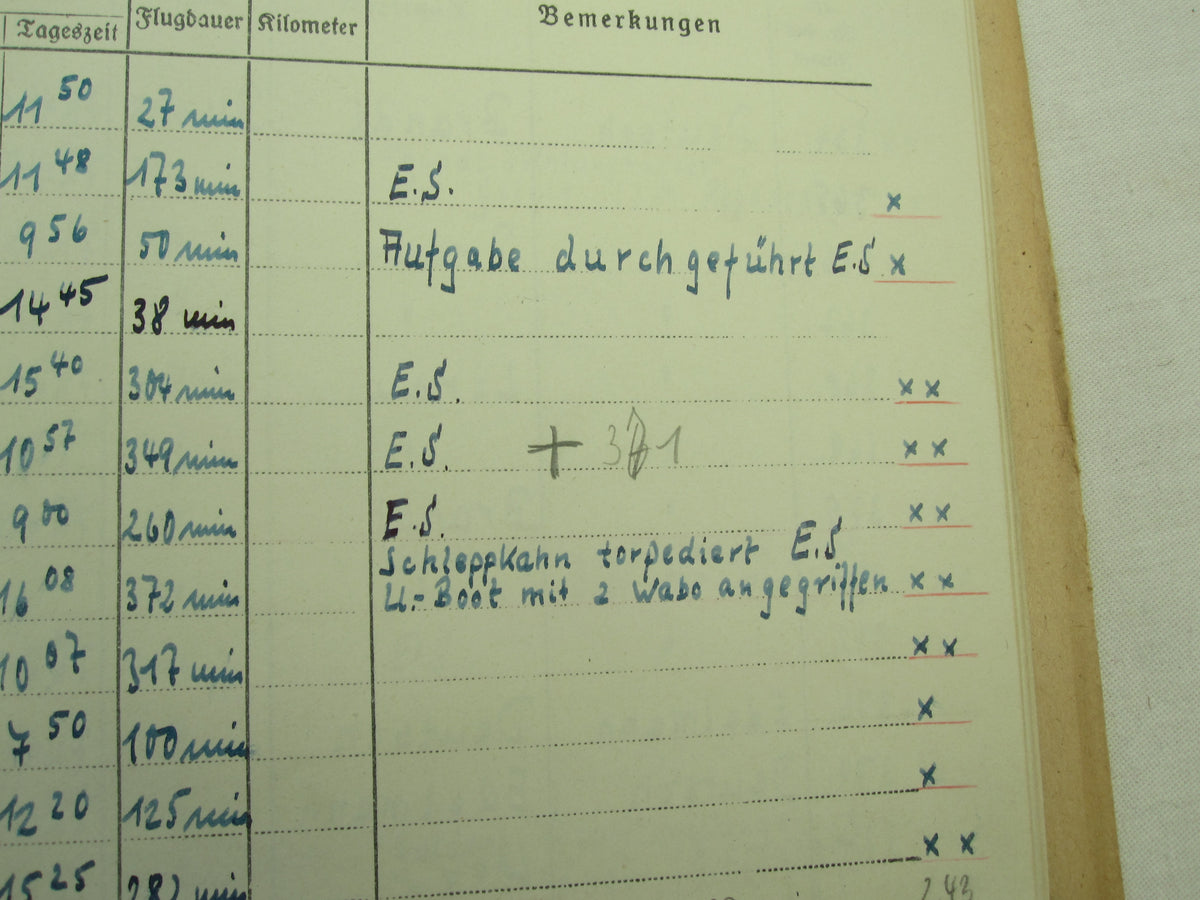 Tageszeit Flugdauer Kilometer Bemerkungen
11 50 27 min
11 48 173 min E.S. x
9 56 50 min Aufgabe durchgeführt E.S x
14 45 38 min
15 40 304 min E.S. x x
10 57 349 min E.S. + x x
9 00 260 min E.S. x x
Schleppkahn torpediert E.S
16 08 372 min U.-Boot mit 2 Wabo angegriffen x x
10 07 317 min x x
7 50 100 min x
12 20 125 min x
15 25 282 min x x
243